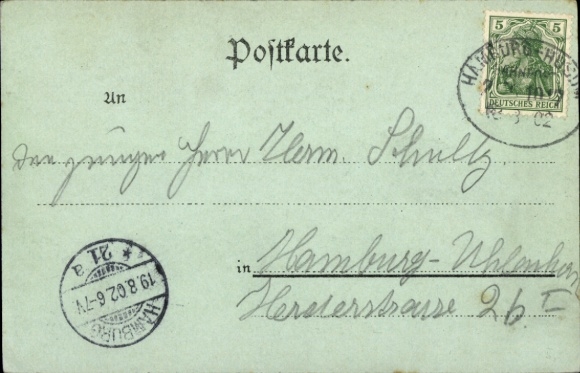 Postkarte.
5 5
DEUTSCHES REICH
HAMBURG-HUSUM
An
Herrn Herm. Schultz.
in Hamburg-Uhlenhorst
Herderstrasse 26 I
* 21 a
19.8.02.6-7V
HAMBURG